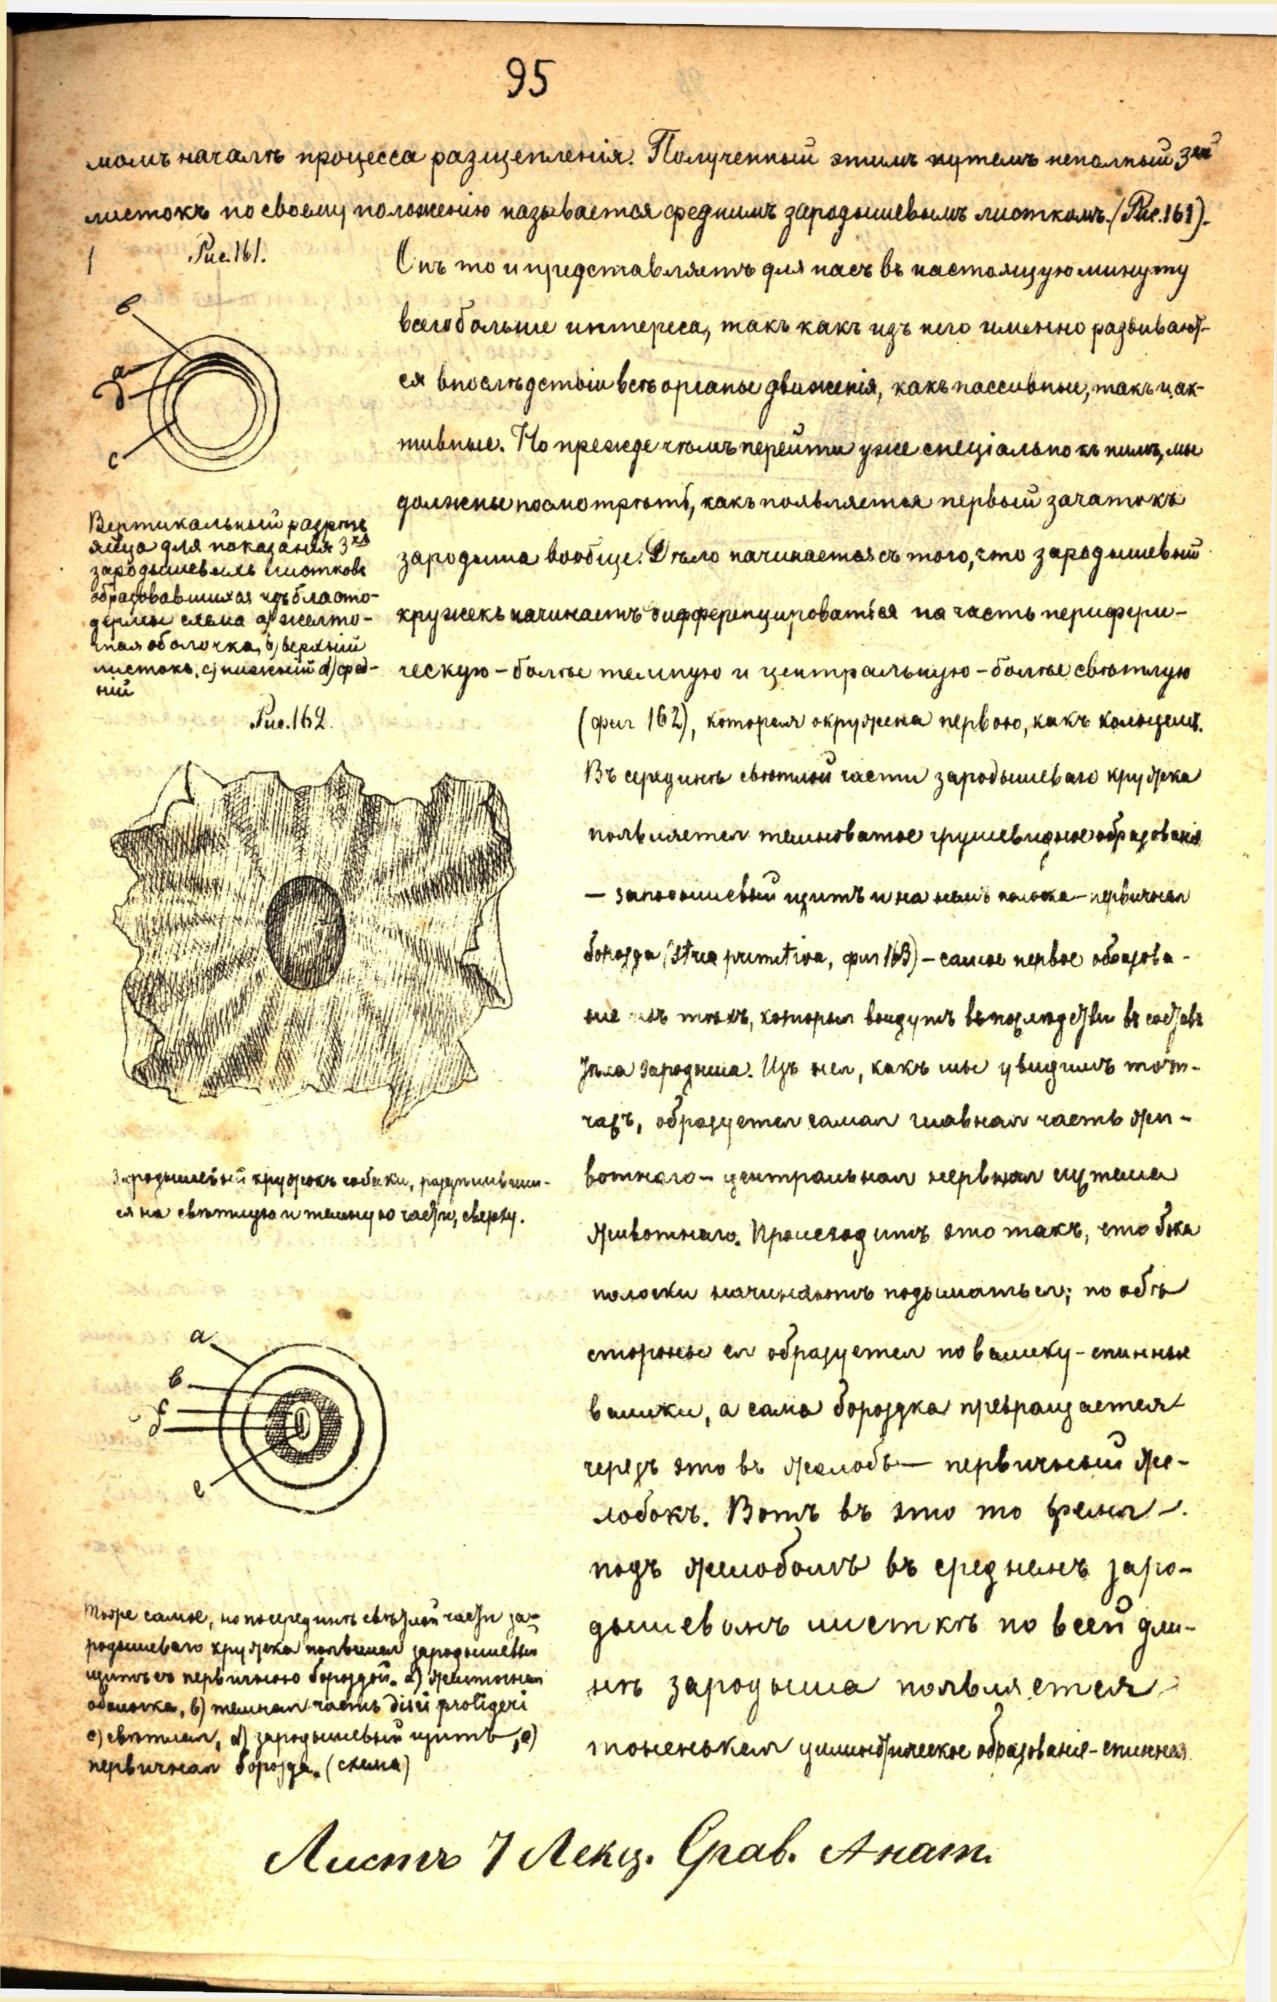 95
момъ началѣ процесса разщепленія. Полученный этимъ путемъ неполный 3ій
листокъ по своему положенію называется среднимъ зародышевымъ листкомъ. (Рис. 161).
Рис. 161.
Онъ то и представляетъ для насъ въ настоящую минуту
всего больше интереса, такъ какъ изъ него именно развивают-
ся впослѣдствіи всѣ органы движенія, какъ пассивные, такъ и ак-
тивные. Но прежде чѣмъ перейти уже спеціально къ нимъ, мы
должны посмотрѣть, какъ появляется первый зачатокъ
зародыша вообще. Дѣло начинается съ того, что зародышевый
кружекъ начинаетъ дифференцироваться на часть перифери-
ческую – болѣе темную и центральную – болѣе свѣтлую
(фиг 162), которая окружена первою, какъ кольцемъ.
Въ серединѣ свѣтлой части зародышеваго кружка
появляется темноватое грушевидное образованіе
– зародышевый щитъ и на немъ полоска – первичная
борозда (stria primitiva, фиг 163) – самое первое образова-
ніе изъ тѣхъ, которыя войдутъ впослѣдствіи въ составъ
тѣла зародыша. Изъ нея, какъ мы увидимъ тот-
часъ, образуется самая главная часть жи-
вотнаго – центральная нервная система
животнаго. Происходитъ это такъ, что бока
полоски начинаютъ подыматься; по обѣ
стороны ея образуется по валику – спинные
валики, а сама бороздка превращается
черезъ это въ жолобъ – первичный же-
лобокъ. Вотъ въ это то время
подъ желобомъ въ среднемъ заро-
дышевомъ листкѣ по всей дли-
нѣ зародыша появляется
тоненькая цилиндрическое образованіе – спинная
в
а
д
с
Вертикальный разрѣзъ
яйца для показанія 3хъ
зародышевыхъ листковъ
образовавшихся изъ бласто-
дермы схема а) желто-
чная оболочка, b) верхній
листокъ, c) нижній d) сред-
ній
Рис. 162.
Зародышевый кружокъ собаки, раздѣливший-
ся на свѣтлую и темную части, сверху.
а
в
с
д
е
Тоже самое, но посерединѣ свѣтлой части за-
родышеваго кружка появился зародышевый
щитъ съ первичною бороздой. а) желточная
оболочка, b) темная часть disci proligeri
c) свѣтлая, d) зародышевый щитъ, e)
первичная борозда. (схема)
Листъ 7 Лекц. Срав. Анат.